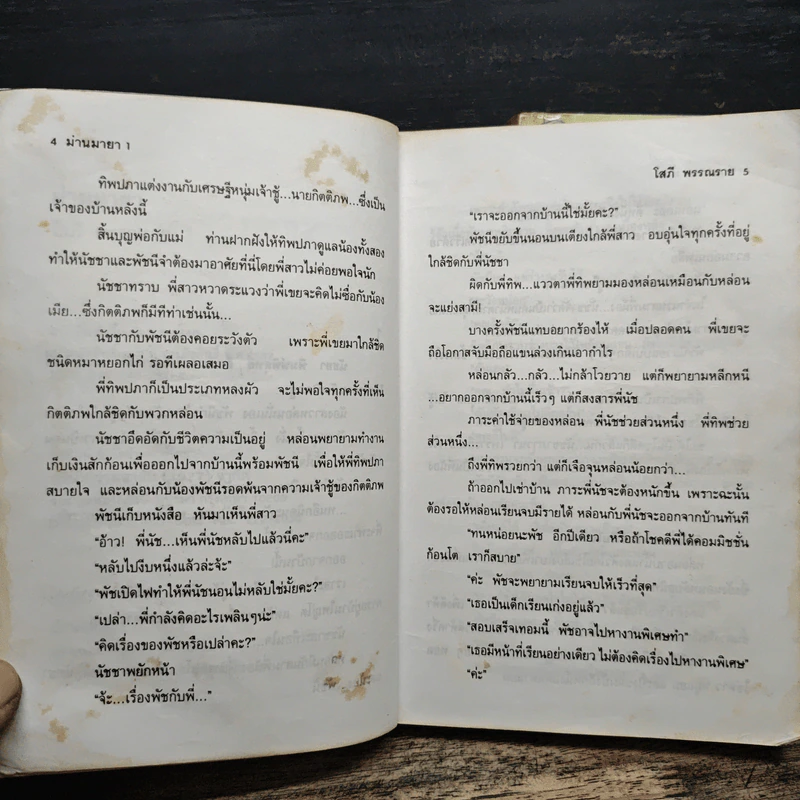 4 ม่านมายา 1
ทิพปภาแต่งงานกับเศรษฐีหนุ่มเจ้าชู้...นายกิตติภพ...ซึ่งเป็น
เจ้าของบ้านหลังนี้
สิ้นบุญพ่อกับแม่ ท่านฝากฝังให้ทิพปภาดูแลน้องทั้งสอง
ทำให้นัชชาและพัชนีจำต้องมาอาศัยที่นี่โดยพี่สาวไม่ค่อยพอใจนัก
นัชชาทราบ พี่สาวหวาดระแวงว่าพี่เขยจะคิดไม่ซื่อกับน้อง
เมีย...ซึ่งกิตติภพก็มีทีท่าเช่นนั้น...
นัชชากับพัชนีต้องคอยระวังตัว เพราะพี่เขยมาใกล้ชิด
ชนิดหมาหยอกไก่ รอทีเผลอเสมอ
พี่ทิพปภาก็เป็นประเภทหลงผัว จะไม่พอใจทุกครั้งที่เห็น
กิตติภพใกล้ชิดกับพวกหล่อน
นัชชาอึดอัดกับชีวิตความเป็นอยู่ หล่อนพยายามทำงาน
เก็บเงินสักก้อนเพื่อออกไปจากบ้านนี้พร้อมพัชนี เพื่อให้พี่ทิพปภา
สบายใจ และหล่อนกับน้องพัชนีรอดพ้นจากความเจ้าชู้ของกิตติภพ
พัชนีเก็บหนังสือ หันมาเห็นพี่สาว
“อ้าว! พี่นัช...เห็นพี่นัชหลับไปแล้วนี่คะ”
“หลับไปงีบหนึ่งแล้วล่ะจ้ะ”
“พัชเปิดไฟทำให้พี่นัชนอนไม่หลับใช่มั้ยคะ?”
“เปล่า...พี่กำลังคิดอะไรเพลินๆน่ะ”
“คิดเรื่องของพัชหรือเปล่าคะ?”
นัชชาพยักหน้า
“จ้ะ...เรื่องพัชกับพี่...”
โสภี พรรณราย 5
“เราจะออกจากบ้านนี้ใช่มั้ยคะ?”
พัชนีขยับขึ้นนอนบนเตียงใกล้พี่สาว อบอุ่นใจทุกครั้งที่อยู่
ใกล้ชิดกับพี่นัชชา
ผิดกับพี่ทิพ...แววตาพี่ทิพยามมองหล่อนเหมือนกับหล่อน
จะแย่งสามี!
บางครั้งพัชนีแทบอยากร้องไห้ เมื่อปลอดคน พี่เขยจะ
ถือโอกาสจับมือถือแขนล่วงเกินเอากำไร
หล่อนกลัว...กลัว...ไม่กล้าโวยวาย แต่ก็พยายามหลีกหนี
...อยากออกจากบ้านนี้เร็วๆ แต่ก็สงสารพี่นัช
ภาระค่าใช้จ่ายของหล่อน พี่นัชช่วยส่วนหนึ่ง พี่ทิพช่วย
ส่วนหนึ่ง...
ถึงพี่ทิพรวยกว่า แต่ก็เจือจุนหล่อนน้อยกว่า...
ถ้าออกไปเช่าบ้าน ภาระพี่นัชจะต้องหนักขึ้น เพราะฉะนั้น
ต้องรอให้หล่อนเรียนจบมีรายได้ หล่อนกับพี่นัชจะออกจากบ้านทันที
“ทนหน่อยนะพัช อีกปีเดียว หรือถ้าโชคดีพี่ได้คอมมิชชั่น
ก้อนโต เราก็สบาย”
“ค่ะ พัชจะพยายามเรียนจบให้เร็วที่สุด”
“เธอเป็นเด็กเรียนเก่งอยู่แล้ว”
“สอบเสร็จเทอมนี้ พัชอาจไปหางานพิเศษทำ”
“เธอมีหน้าที่เรียนอย่างเดียว ไม่ต้องคิดเรื่องไปหางานพิเศษ”
“ค่ะ”